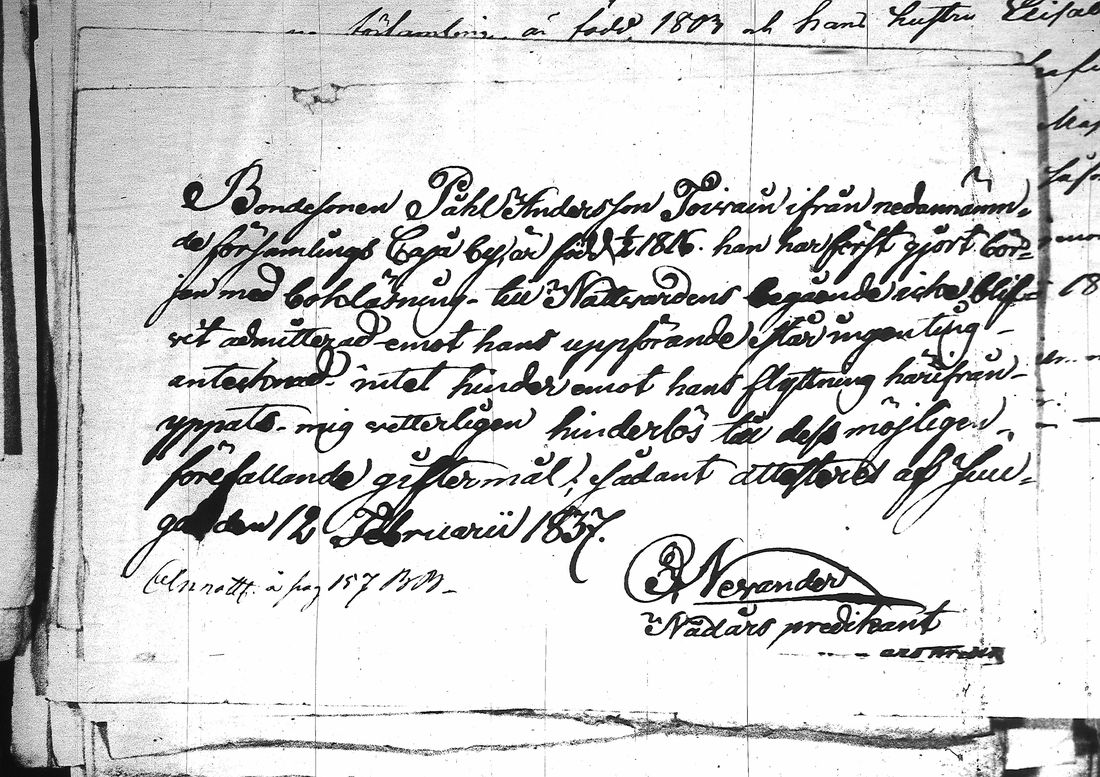 församling är född 1803 och hans hustru Elisab
Bondesonen Påhl Andersson Toivain ifrån nedannämn-
de församlings Caja by, är född 1816. han har först gjort bör-
jan med bokläsning - till Nattwardens begående icke blif-
vit admitterad - emot hans uppförande står ingenting -
antecknad - intet hinder emot hans flyttning härifrån -
yppats - mig vetterligen hinderlös till dess möjligen -
förefallande giftermål; sådant attesteres af Jou-
den 12 Februarii 1837.
Annott. å pag 157 BB -
Nevander
Nådårs predikant